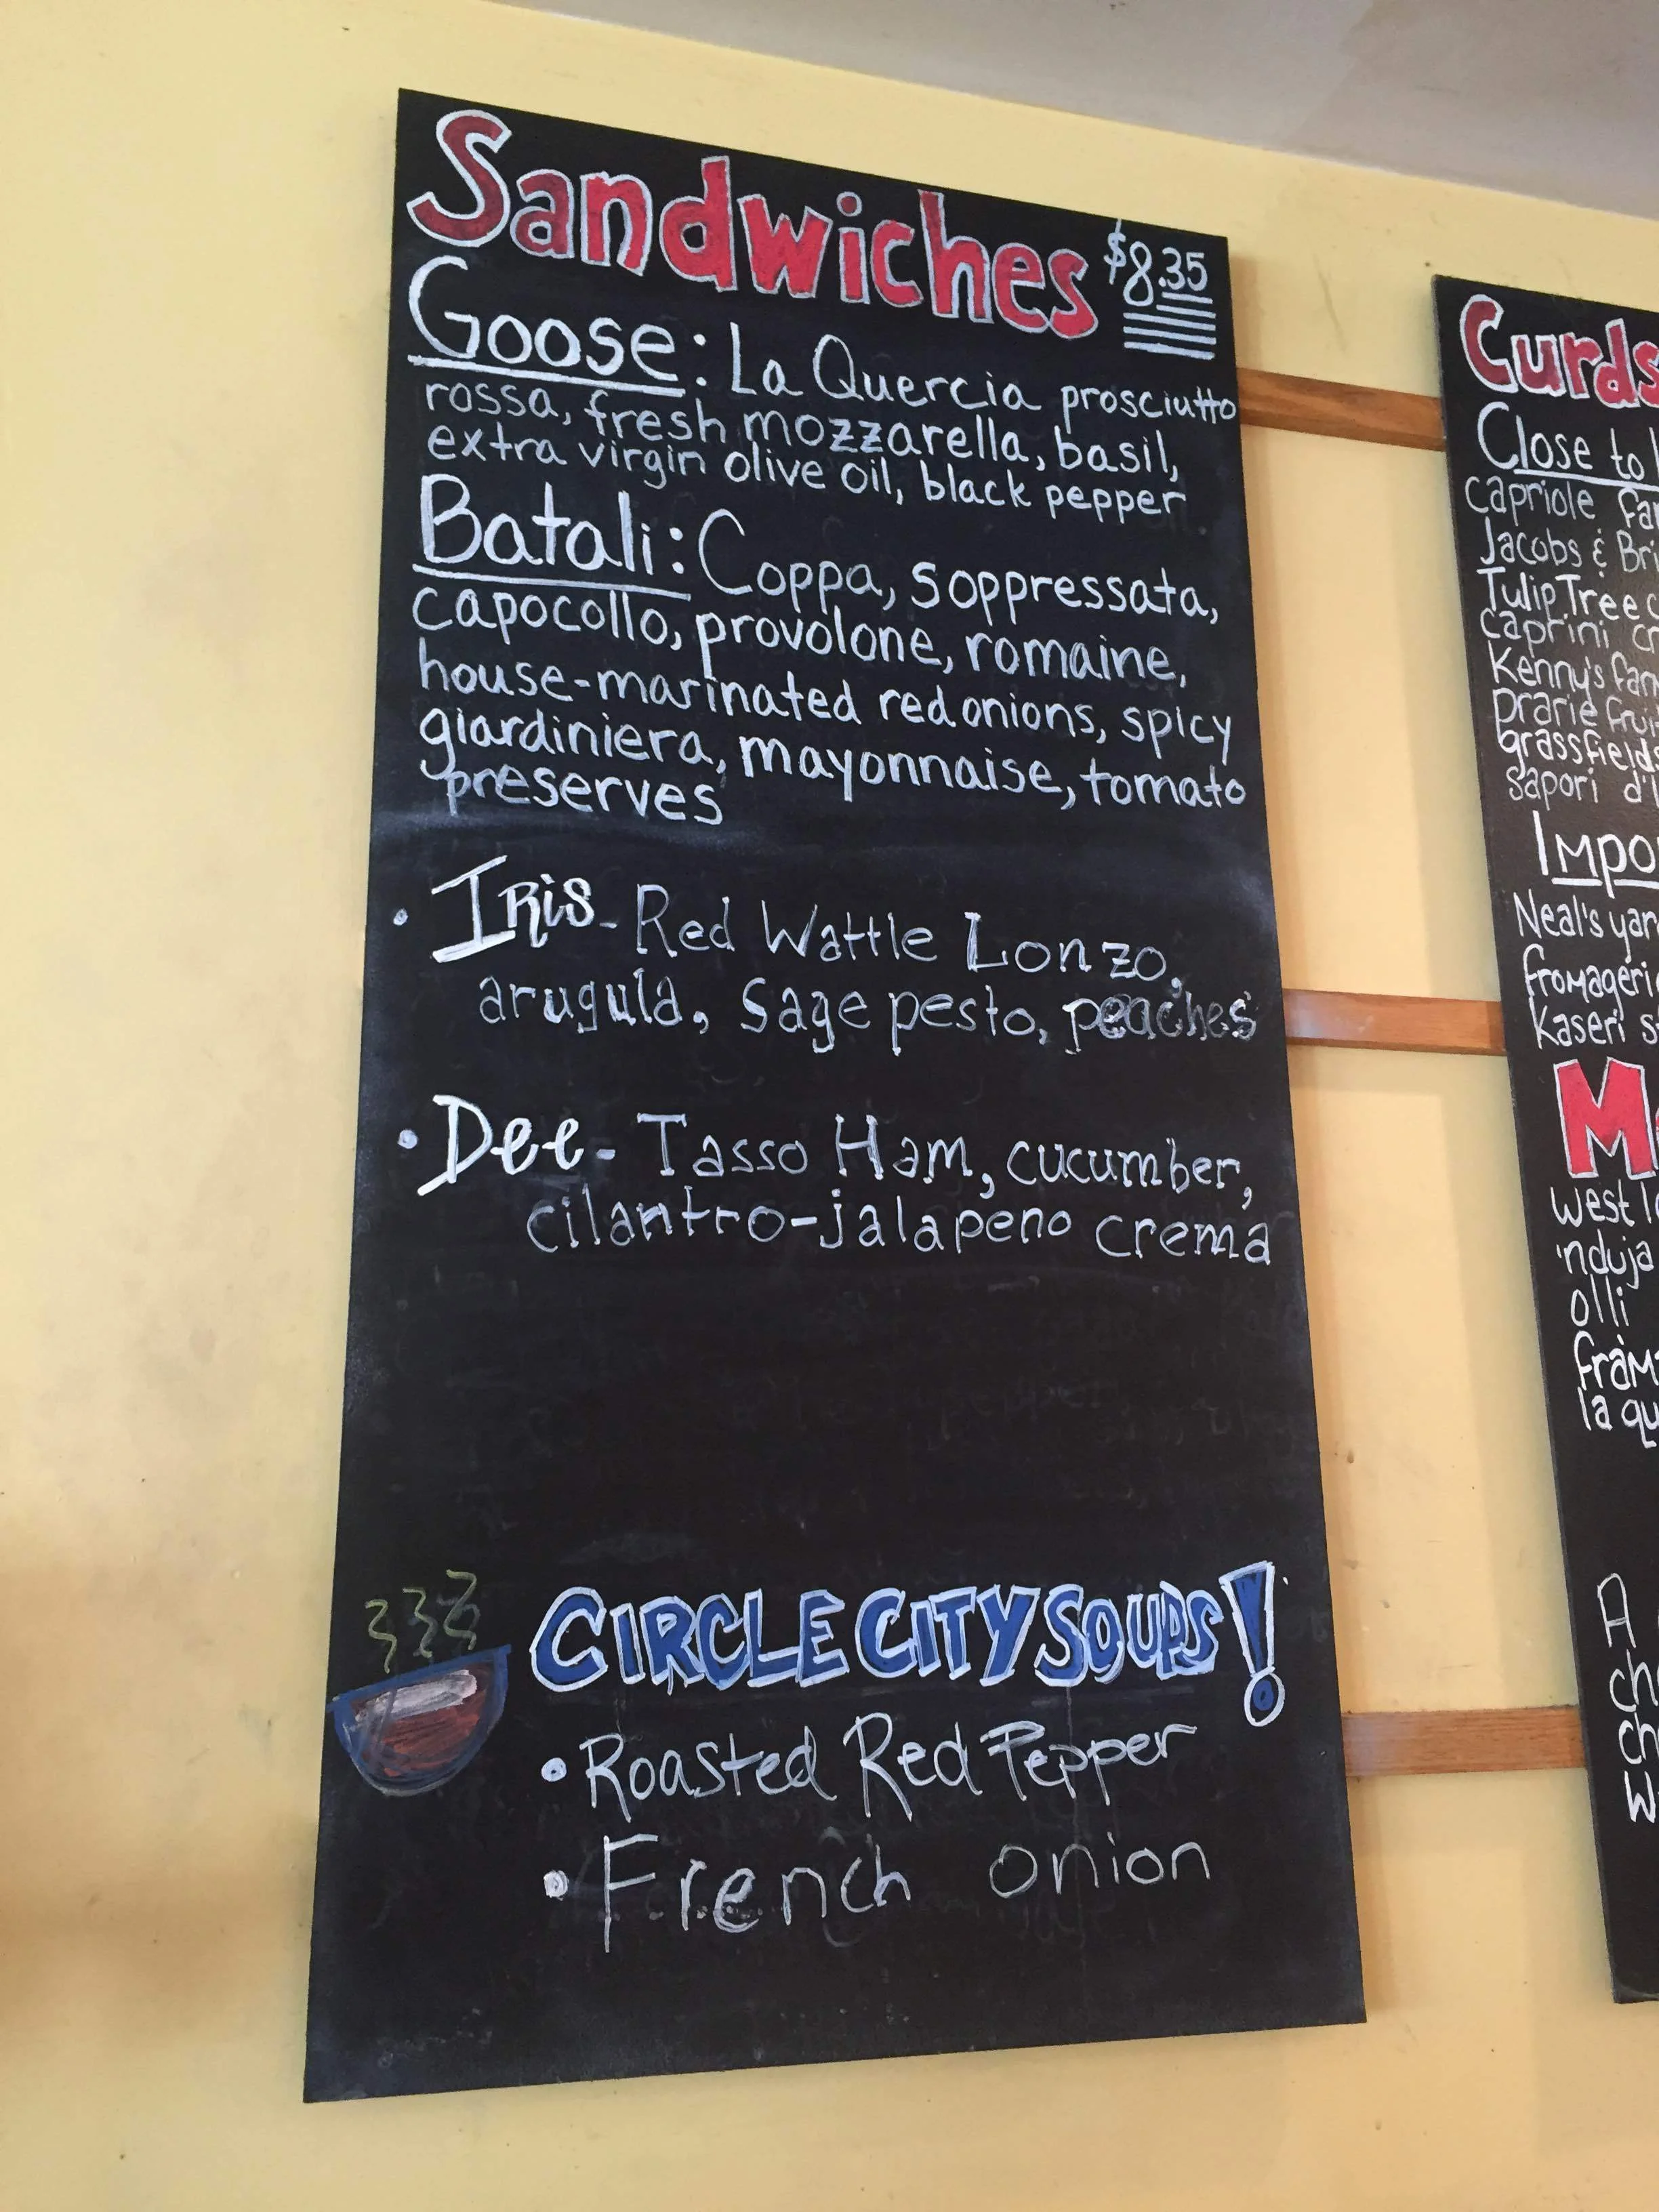 Sandwiches $8.35
Goose: La Quercia prosciutto
rossa, fresh mozzarella, basil,
extra virgin olive oil, black pepper
Batali: Coppa, soppressata,
capocollo, provolone, romaine,
house-marinated red onions, spicy
giardiniera, mayonnaise, tomato
preserves
• Iris - Red Wattle Lonzo,
arugula, sage pesto, peaches
• Dee - Tasso Ham, cucumber,
cilantro-jalapeno crema
CIRCLE CITY SOUPS!
• Roasted Red Pepper
• French onion
Curds
Close to
capriole
Jacobs & Bri
Tulip Tree c
caprini cr
Kenny's far
prarie frui
grassfields
sapori d'
Impo
Neal's yar
fromageri
kaseri s
M
west l
'nduja
olli
fram
la qu
A
ch
ch
W